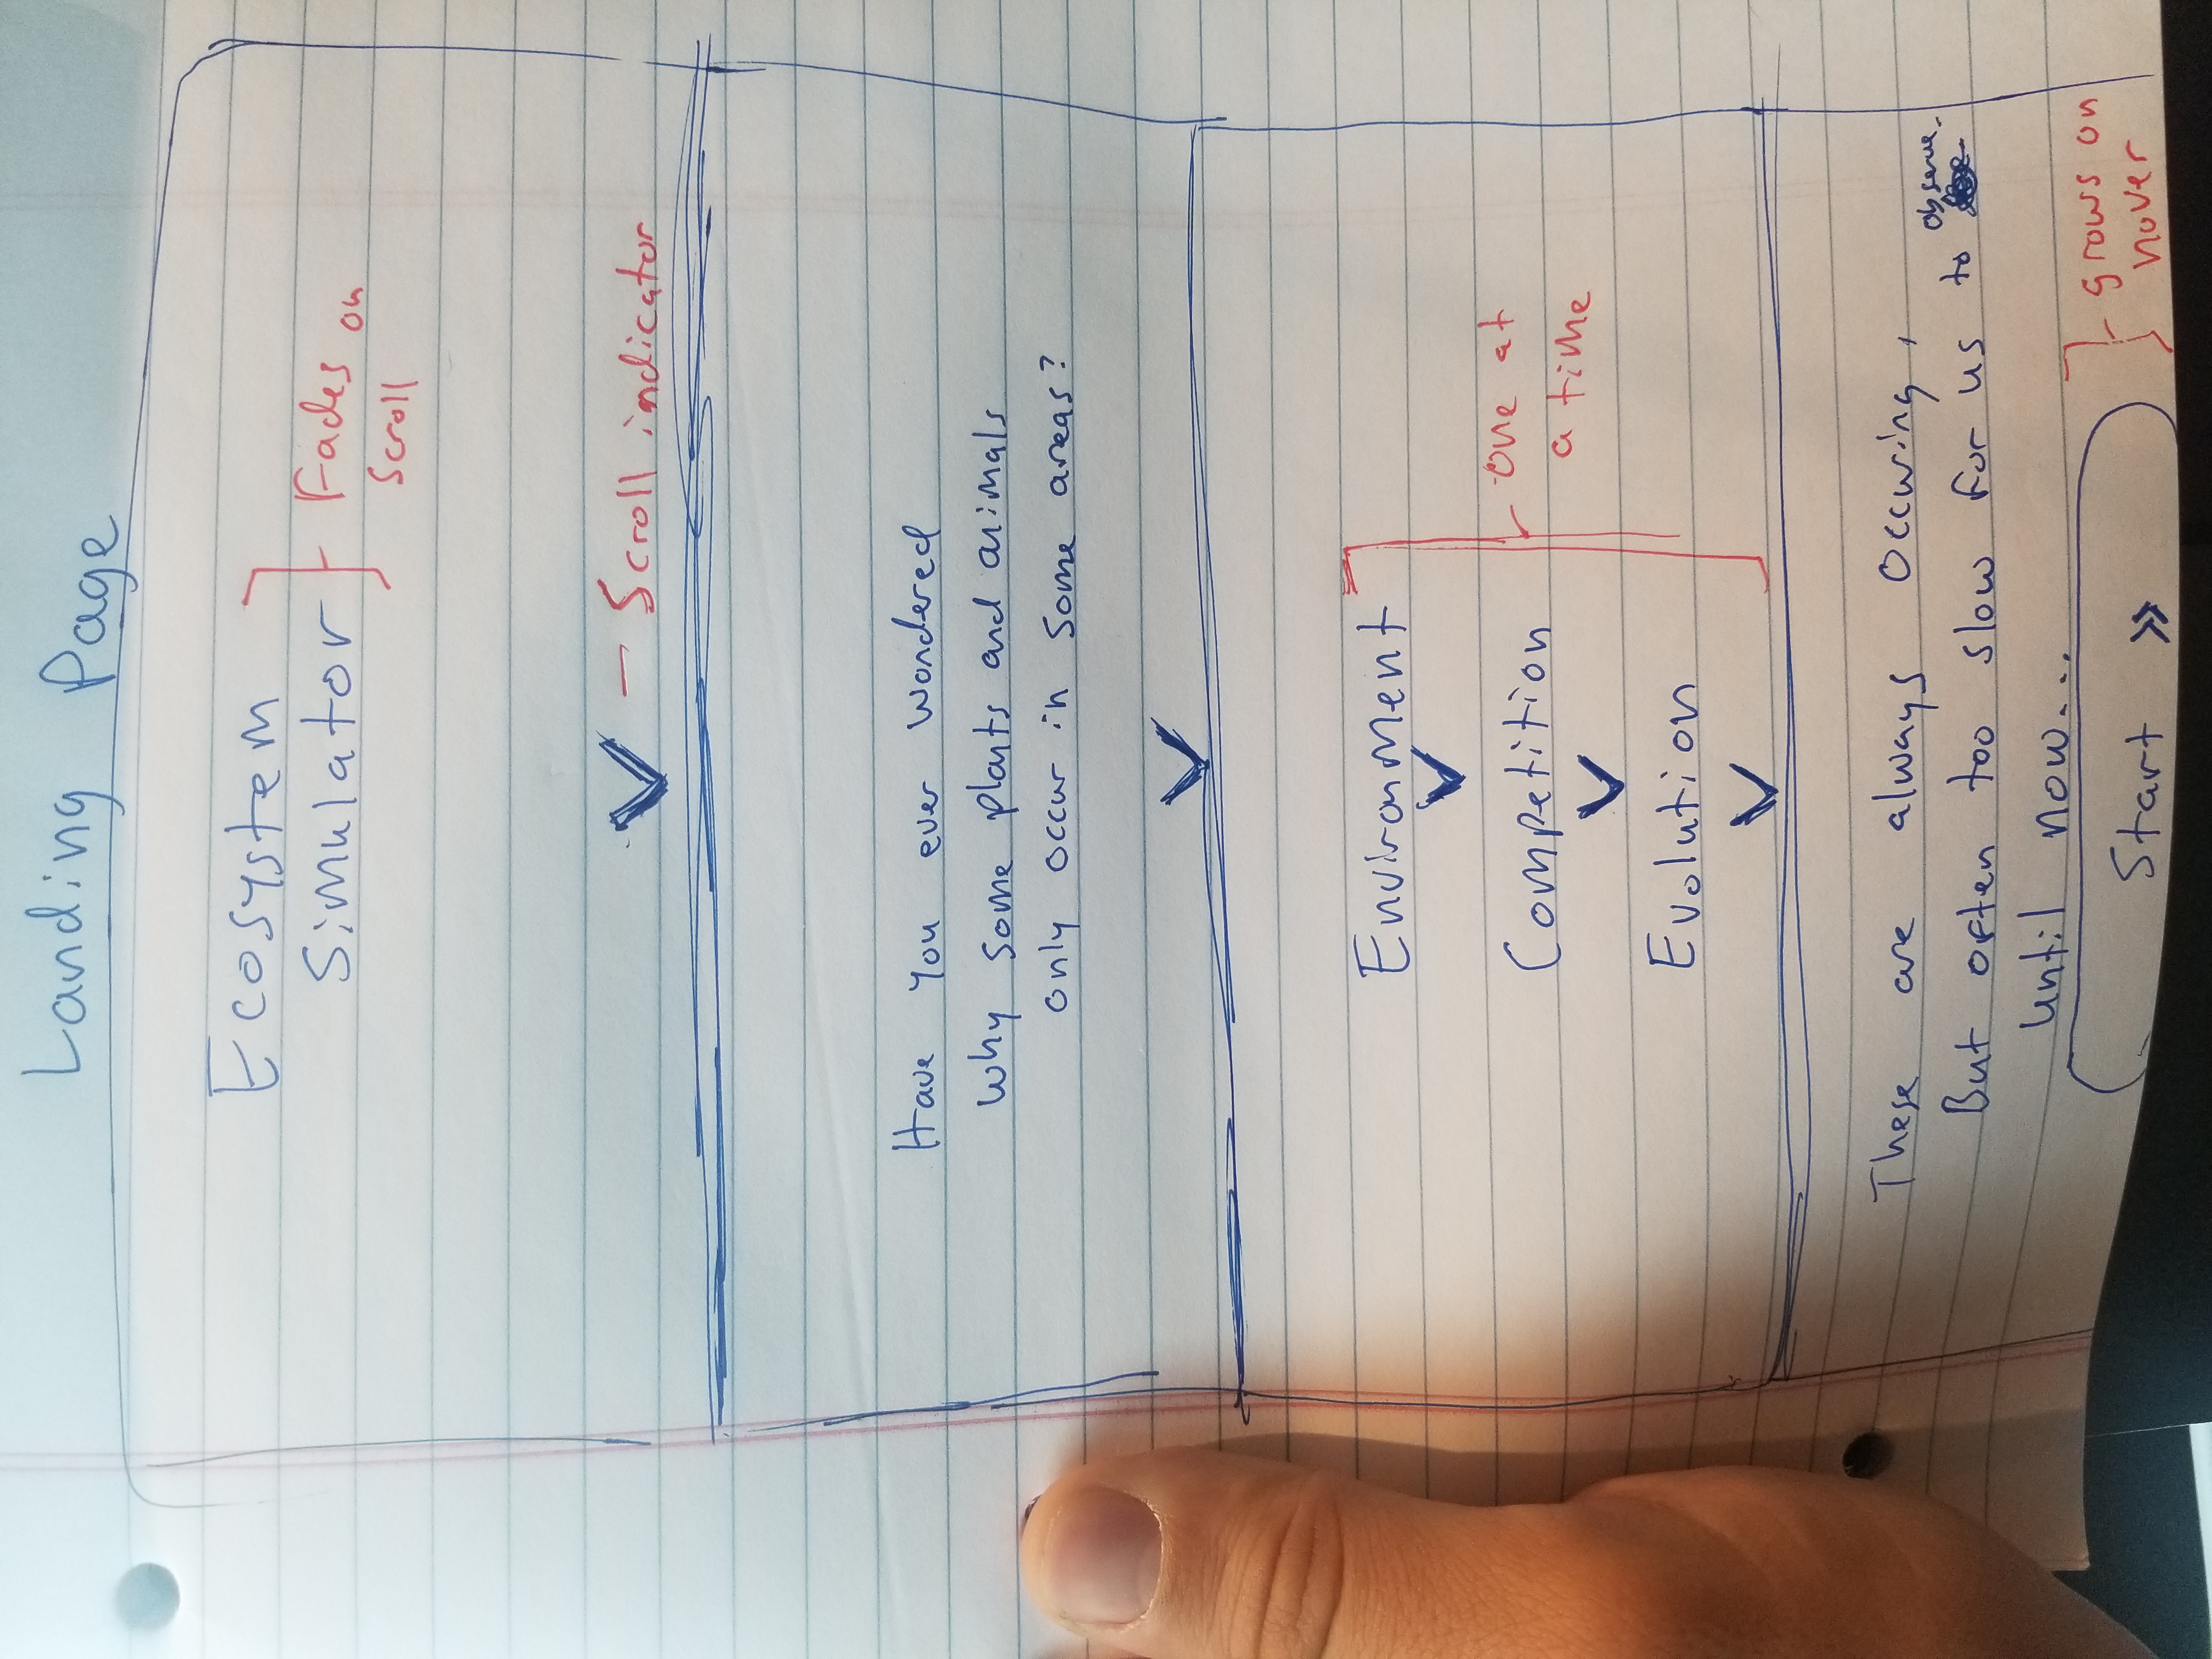 Landing Page
Ecosystem
Simulator
Fades on
Scroll
— Scroll indicator
Have you ever wondered
why some plants and animals
only occur in some areas?
Environment
Competition
one at
a time
Evolution
These are always occuring,
observe.
But often too slow for us to
until now...
Start »
grows on
hover